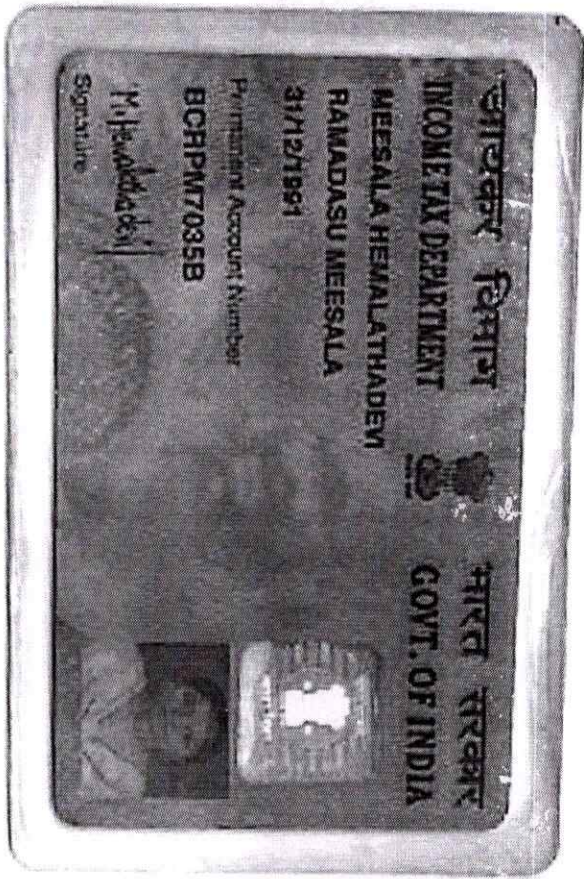 आयकर विभाग
INCOME TAX DEPARTMENT
भारत सरकार
GOVT. OF INDIA
MEESALA HEMALATHADEVI
RAMADASU MEESALA
31/12/1991
Permanent Account Number
BCRPM7035B
Signature